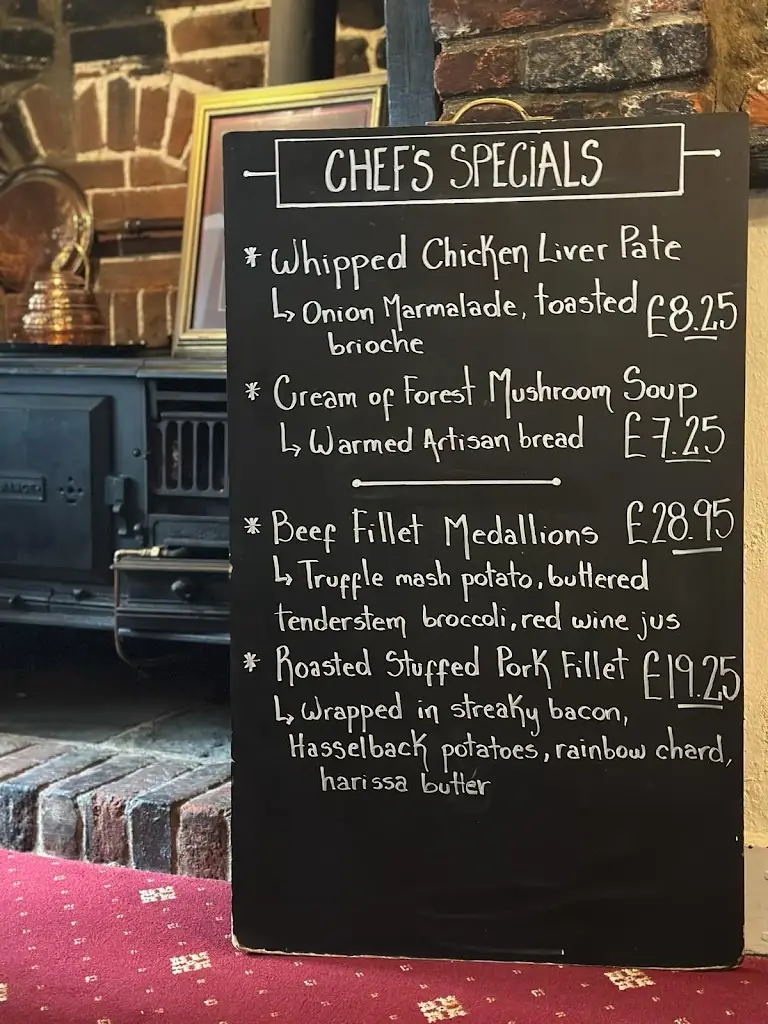 CHEF'S SPECIALS
* Whipped Chicken Liver Pate
↳ Onion Marmalade, toasted £8.25
brioche
* Cream of Forest Mushroom Soup
↳ Warmed Artisan bread £7.25
* Beef Fillet Medallions £28.95
↳ Truffle mash potato, buttered
tenderstem broccoli, red wine jus
* Roasted Stuffed Pork Fillet £19.25
↳ Wrapped in streaky bacon,
Hasselback potatoes, rainbow chard,
harissa butter